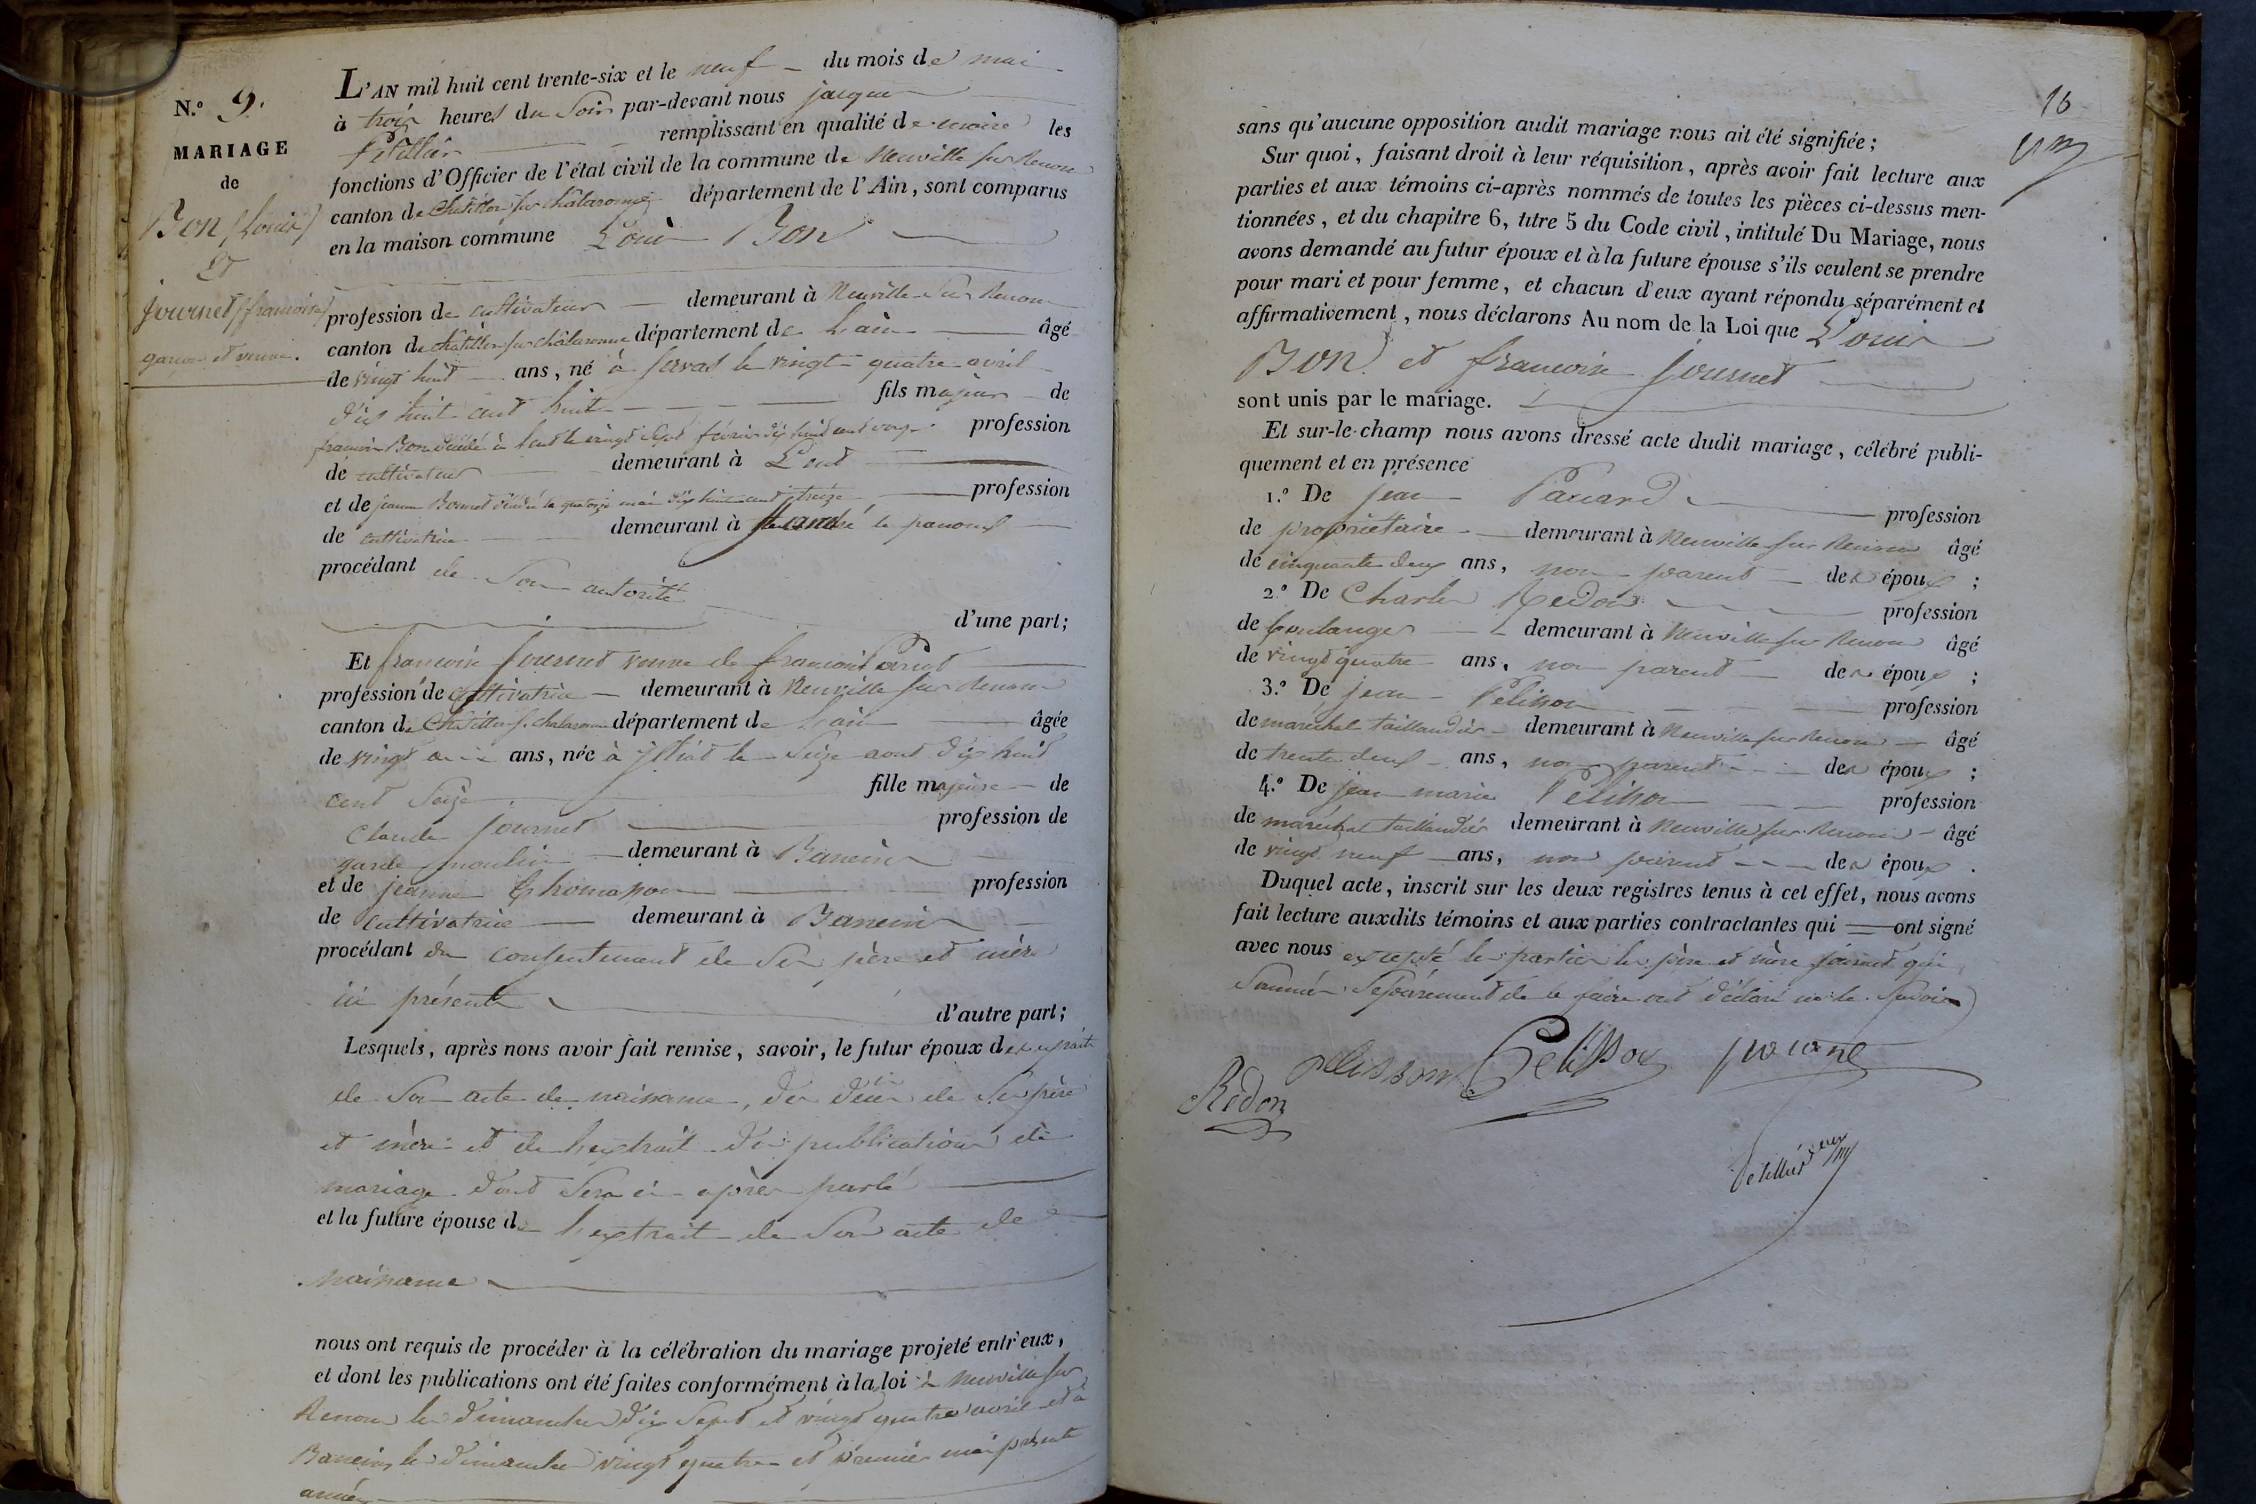 N.º 9.
MARIAGE
de
Bon (Louis)
Et
journet (francoise)
garçon et veuve.
L'AN mil huit cent trente-six et le neuf du mois de mai
à trois heures du soir par-devant nous jacques
remplissant en qualité de maire les
fonctions d'Officier de l'état civil de la commune de Neuville sur Renom
canton de Chatillon sur Châlaronne département de l'Ain, sont comparus
en la maison commune Louis Bon
profession de cultivateur demeurant à Neuville sur Renom
canton de châtillon sur châlaronne département de Lain âgé
de vingt huit ans, né à Servas le vingt quatre avril
dix huit cent huit fils majeur de
francois Bon décédé à Lent le vingt sept février dix huit cent onze profession
de cultivateur demeurant à Lent
et de jeanne Bonnet décédée le quatorze mai dix huit cent treize profession
de cultivatrice demeurant à St andré le panoux
procédant de son autorité
d'une part;
Et francoise journet veuve de francois
profession de cultivatrice demeurant à Neuville sur Renom
canton de Châtillon s. chalaronne département de Lain âgée
de vingt ans, née à le seize aout dix huit
cent seize fille majeure de
Claude journet profession de
garde moulin demeurant à Baneins
et de jeanne thomasson profession
de cultivatrice demeurant à Baneins
procédant du consentement de ses père et mère
ici présents
d'autre part;
Lesquels, après nous avoir fait remise, savoir, le futur époux des extraits
de son acte de naissance, du décès de ses père
et mère et de l'extrait des publications de
mariage dont sera ci-après parlé
et la future épouse de l'extrait de son acte de
naissance
nous ont requis de procéder à la célébration du mariage projeté entr'eux,
et dont les publications ont été faites conformément à la loi à Neuville sur
Renom les dimanches dix sept et vingt quatre avril et à
Baneins les dimanches vingt quatre et premier mai présente
année
16
sans qu'aucune opposition audit mariage nous ait été signifiée;
Sur quoi, faisant droit à leur réquisition, après avoir fait lecture aux
parties et aux témoins ci-après nommés de toutes les pièces ci-dessus men-
tionnées, et du chapitre 6, titre 5 du Code civil, intitulé Du Mariage, nous
avons demandé au futur époux et à la future épouse s'ils veulent se prendre
pour mari et pour femme, et chacun d'eux ayant répondu séparément et
affirmativement, nous déclarons Au nom de la Loi que Louis
Bon et francoise journet
sont unis par le mariage.
Et sur-le-champ nous avons dressé acte dudit mariage, célébré publi-
quement et en présence
1.º De jean profession
de propriétaire demeurant à Neuville sur Renom âgé
de cinquante deux ans, non parent des époux;
2.º De Charles Redon profession
de boulanger demeurant à Neuville sur Renom âgé
de vingt quatre ans, non parent des époux;
3.º De jean Pelisson profession
de maréchal taillandier demeurant à Neuville sur Renom âgé
de trente deux ans, non parent des époux;
4.º De jean marie Pelisson profession
de maréchal taillandier demeurant à Neuville sur Renom âgé
de vingt neuf ans, non parent des époux.
Duquel acte, inscrit sur les deux registres tenus à cet effet, nous avons
fait lecture auxdits témoins et aux parties contractantes qui ont signé
avec nous excepté les parties les père et mère journet qui
sommés séparément de le faire ont déclaré ne le savoir
Redon pelisson Pelisson